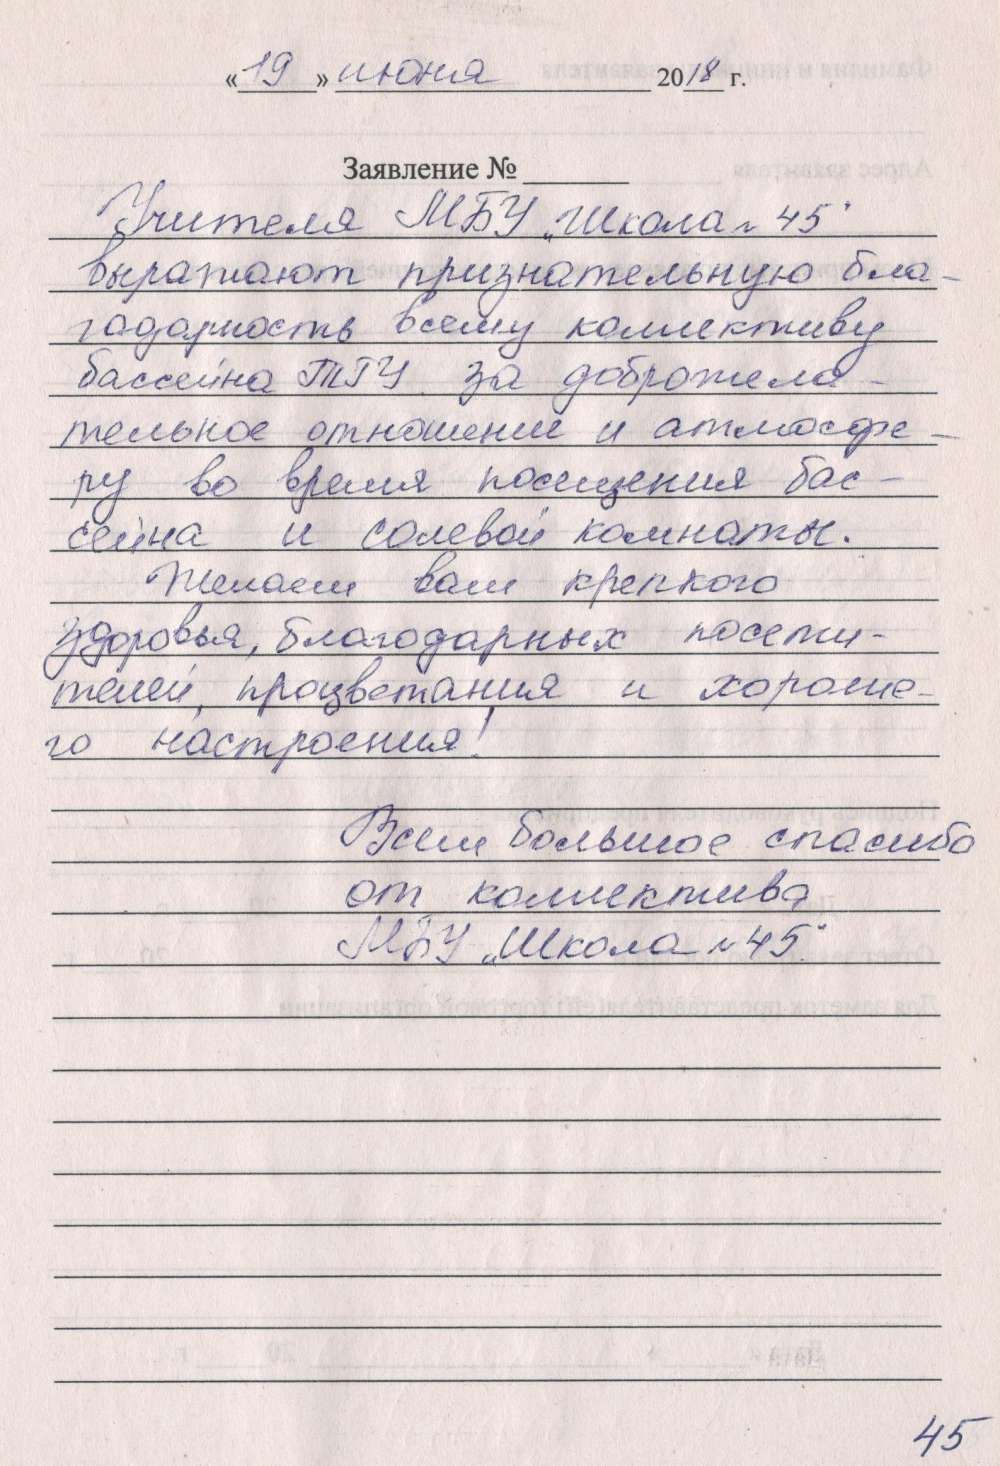 «19» июня 2018 г.
Заявление №
Учителя МБУ „Школа № 45"
выражают признательную бла-
гадарность всему коллективу
бассейна ТГУ за доброжела-
тельное отношение и атмосфе-
ру во время посещения бас-
сейна и солевой комнаты.
Желаем вам крепкого
здоровья, благодарных посети-
телей, процветания и хороше-
го настроения!
Всем большое спасибо
от коллектива
МБУ „Школа № 45".
45